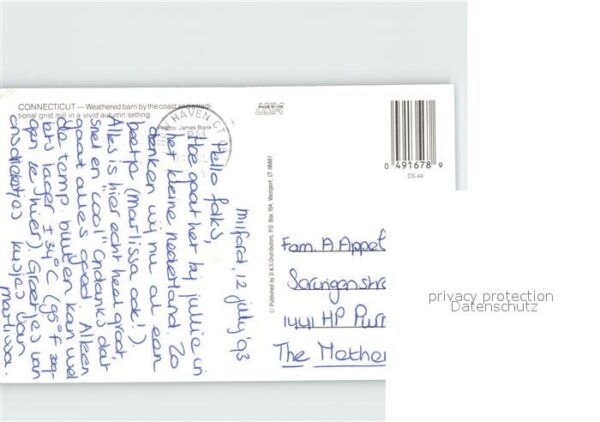 CONNECTICUT — Weathered barn by the coast and a tradi-
tional grist mill in a vivid autumn setting.
Photos: James Blank
HAVEN CT
PM
Milford, 12 july '93
Hello folks,
Hoe gaat het bij jullie in
het kleine Nederland. Zo
denken wij nu al een
beetje (Marlissa ook!).
Alles is hier echt heel groot,
snel en "cool". Ondanks dat
gaat alles goed. Alleen
de temp. buiten kan wel
iets lager ± 34°C (95°F zeg-
gen ze hier). Groetjes van
ons
kusjes van
marlissa.
© Published by D & S Distributors, P.O. Box 10A, Westport, CT 06881
0 491678 9
DS-44
Fam. A. Appel
1441 HP Purm
The Nether
privacy protection
Datenschutz